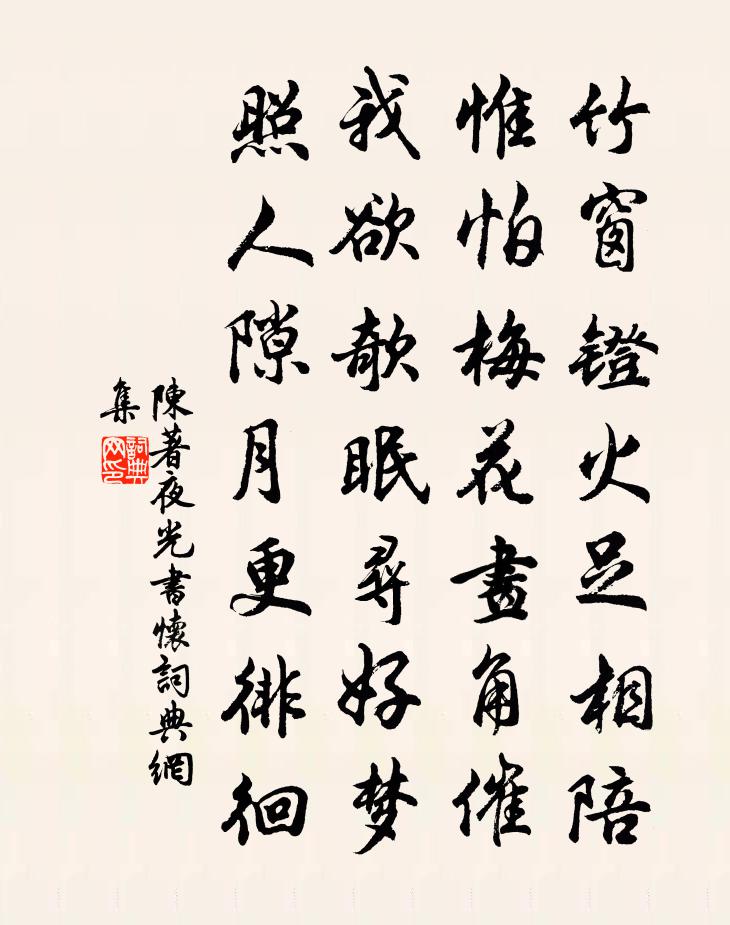 竹窗鐙火足相陪
惟怕梅花畫角催
我欲欹眠尋好梦
照人隙月更徘徊
陳著夜光書懷詞典網
集
詞典
网印